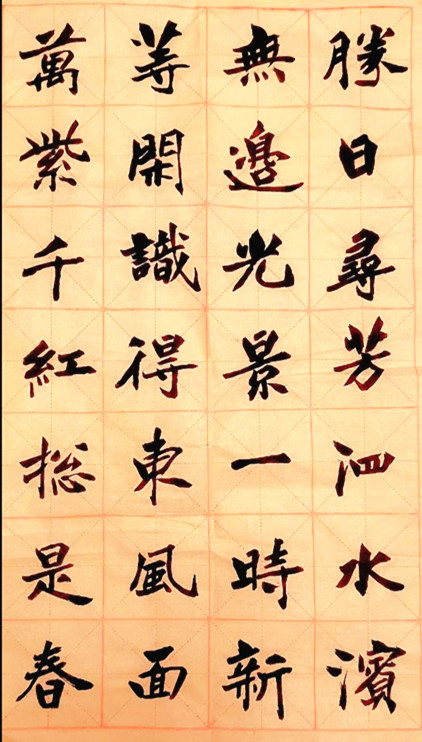 勝日尋芳泗水濱
無邊光景一時新
等閑識得東風面
萬紫千紅総是春